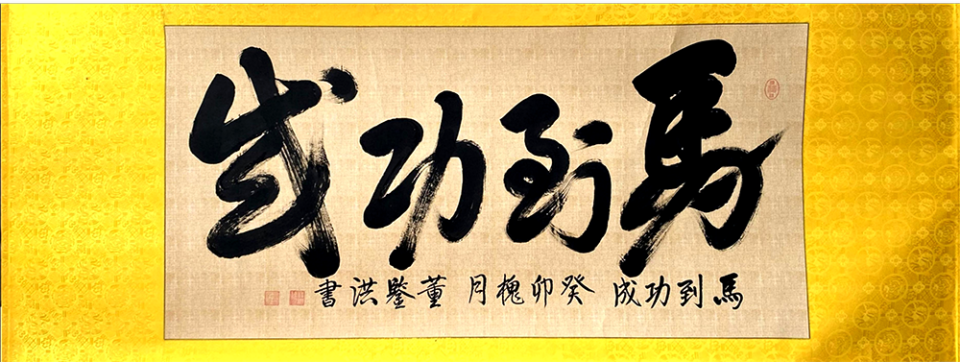 馬到功成
馬到功成 癸卯槐月 董鑒洪書